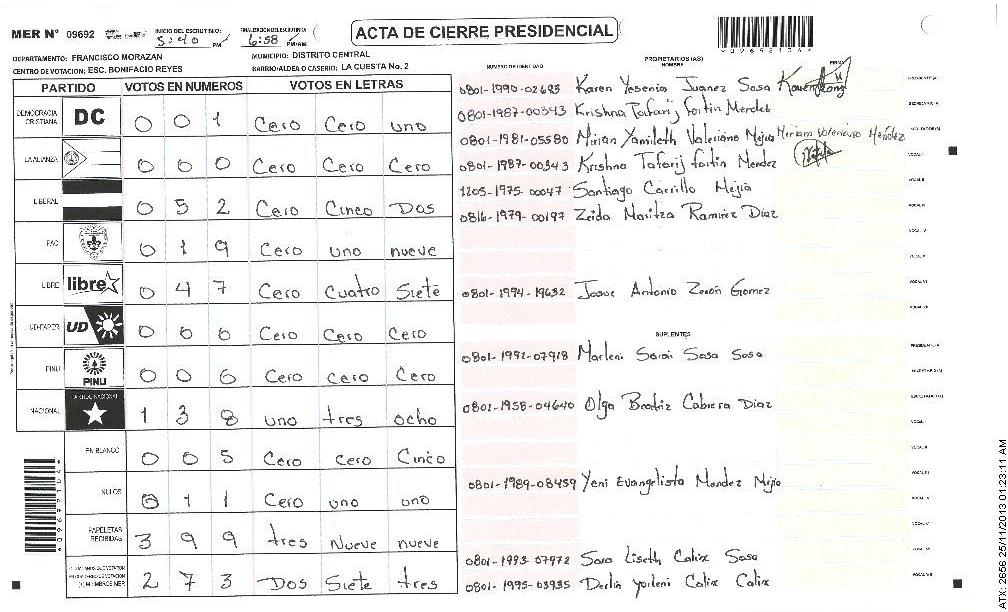 MER N° 09692
INICIO DEL ESCRUTINIO: 5:40 PM
FINALIZACION DEL ESCRUTINIO: 6:58 PM/AM
ACTA DE CIERRE PRESIDENCIAL
DEPARTAMENTO: FRANCISCO MORAZAN
MUNICIPIO: DISTRITO CENTRAL
CENTRO DE VOTACION: ESC. BONIFACIO REYES
BARRIO/ALDEA O CASERIO: LA CUESTA No. 2
PARTIDO VOTOS EN NUMEROS VOTOS EN LETRAS
DEMOCRACIA CRISTIANA DC 0 0 1 Cero Cero uno
LA ALIANZA 0 0 0 Cero Cero Cero
LIBERAL 0 5 2 Cero Cinco Dos
PAC 0 1 9 Cero uno nueve
LIBRE libre 0 4 7 Cero Cuatro Siete
UD-FAPER UD 0 0 0 Cero Cero Cero
PINU PINU 0 0 0 Cero Cero Cero
NACIONAL PARTIDO NACIONAL 1 3 8 uno tres ocho
EN BLANCO 0 0 5 Cero Cero Cinco
NULOS 0 1 1 Cero uno uno
PAPELETAS RECIBIDAS 3 9 9 tres Nueve nueve
2 7 3 Dos Siete tres
NUMERO DE IDENTIDAD
PROPIETARIOS (AS)
NOMBRE
FIRMA
0801-1990-02693 Karen Yesenia Juanez Sosa
PRESIDENTE(A)
0801-1987-00343 Krishna Tafarij fortin Mendez
SECRETARIO/A
0801-1981-05580 Mirian Yamileth Valeriano Mejia Miriam Valeriano Mendez
ESCRUTADOR(A)
0801-1987-00343 Krishna Tafarij fortin Mendez
VOCAL I
1205-1975-00047 Santiago Carrillo Mejia
VOCAL II
0816-1979-00197 Zeida Maritza Ramirez Diaz
VOCAL III
VOCAL IV
VOCAL V
0801-1994-19632 Josue Antonio Zeron Gomez
VOCAL VI
VOCAL VII
SUPLENTES
0801-1992-07918 Marleni Sarai Sosa Sosa
PRESIDENTE/A
SECRETARIO(A)
0801-1958-04640 Olga Beatriz Cabrera Diaz
ESCRUTADOR(A)
VOCAL I
VOCAL II
0801-1989-08459 Yeni Evangelista Mendez Mejia
VOCAL III
VOCAL IV
VOCAL V
0801-1993-07972 Sara Liseth Calix Sosa
VOCAL VI
0801-1995-03935 Derlin Yorleni Calix Calix
VOCAL VII
ATX-2656 25/11/2013 01:23:11 AM